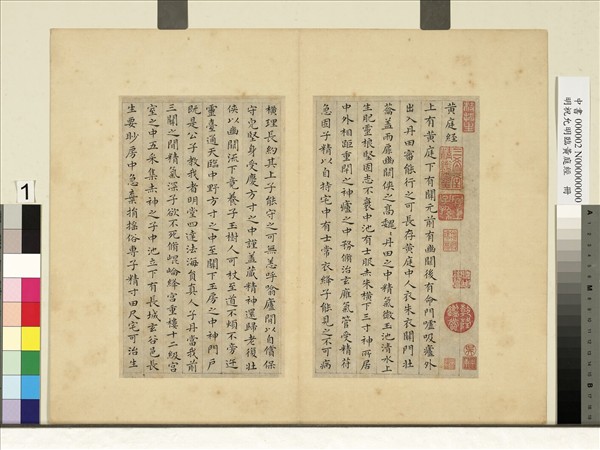 黃庭經
上有黃庭下有關元前有幽關後有命門噓吸廬外
出入丹田審能行之可長存黃庭中人衣朱衣關門壯
籥蓋兩扉幽關俠之高巍巍丹田之中精氣微玉池清水上
生肥靈根堅固志不衰中池有士服赤朱橫下三寸神所居
中外相距重閉之神廬之中務脩治玄廱氣管受精符
急固子精以自持宅中有士常衣絳子能見之不可病
橫理長約其上子能守之可無恙呼翕廬間以自償保
守完堅身受慶方寸之中謹蓋藏精神還歸老復壯
俠以幽關流下竟養子玉樹人可杖至道不煩不旁迕
靈臺通天臨中野方寸之中至關下玉房之中神門戶
既是公子教我者明堂四達法海員真人子丹當我前
三關之間精氣深子欲不死脩崐崘絳宮重樓十二級宮
室之中五采集赤神之子中池立下有長城玄谷邑長
生要眇房中急棄捐搖俗專子精寸田尺宅可治生
中書 000002 N000000000
明祝允明臨黃庭經 冊
1